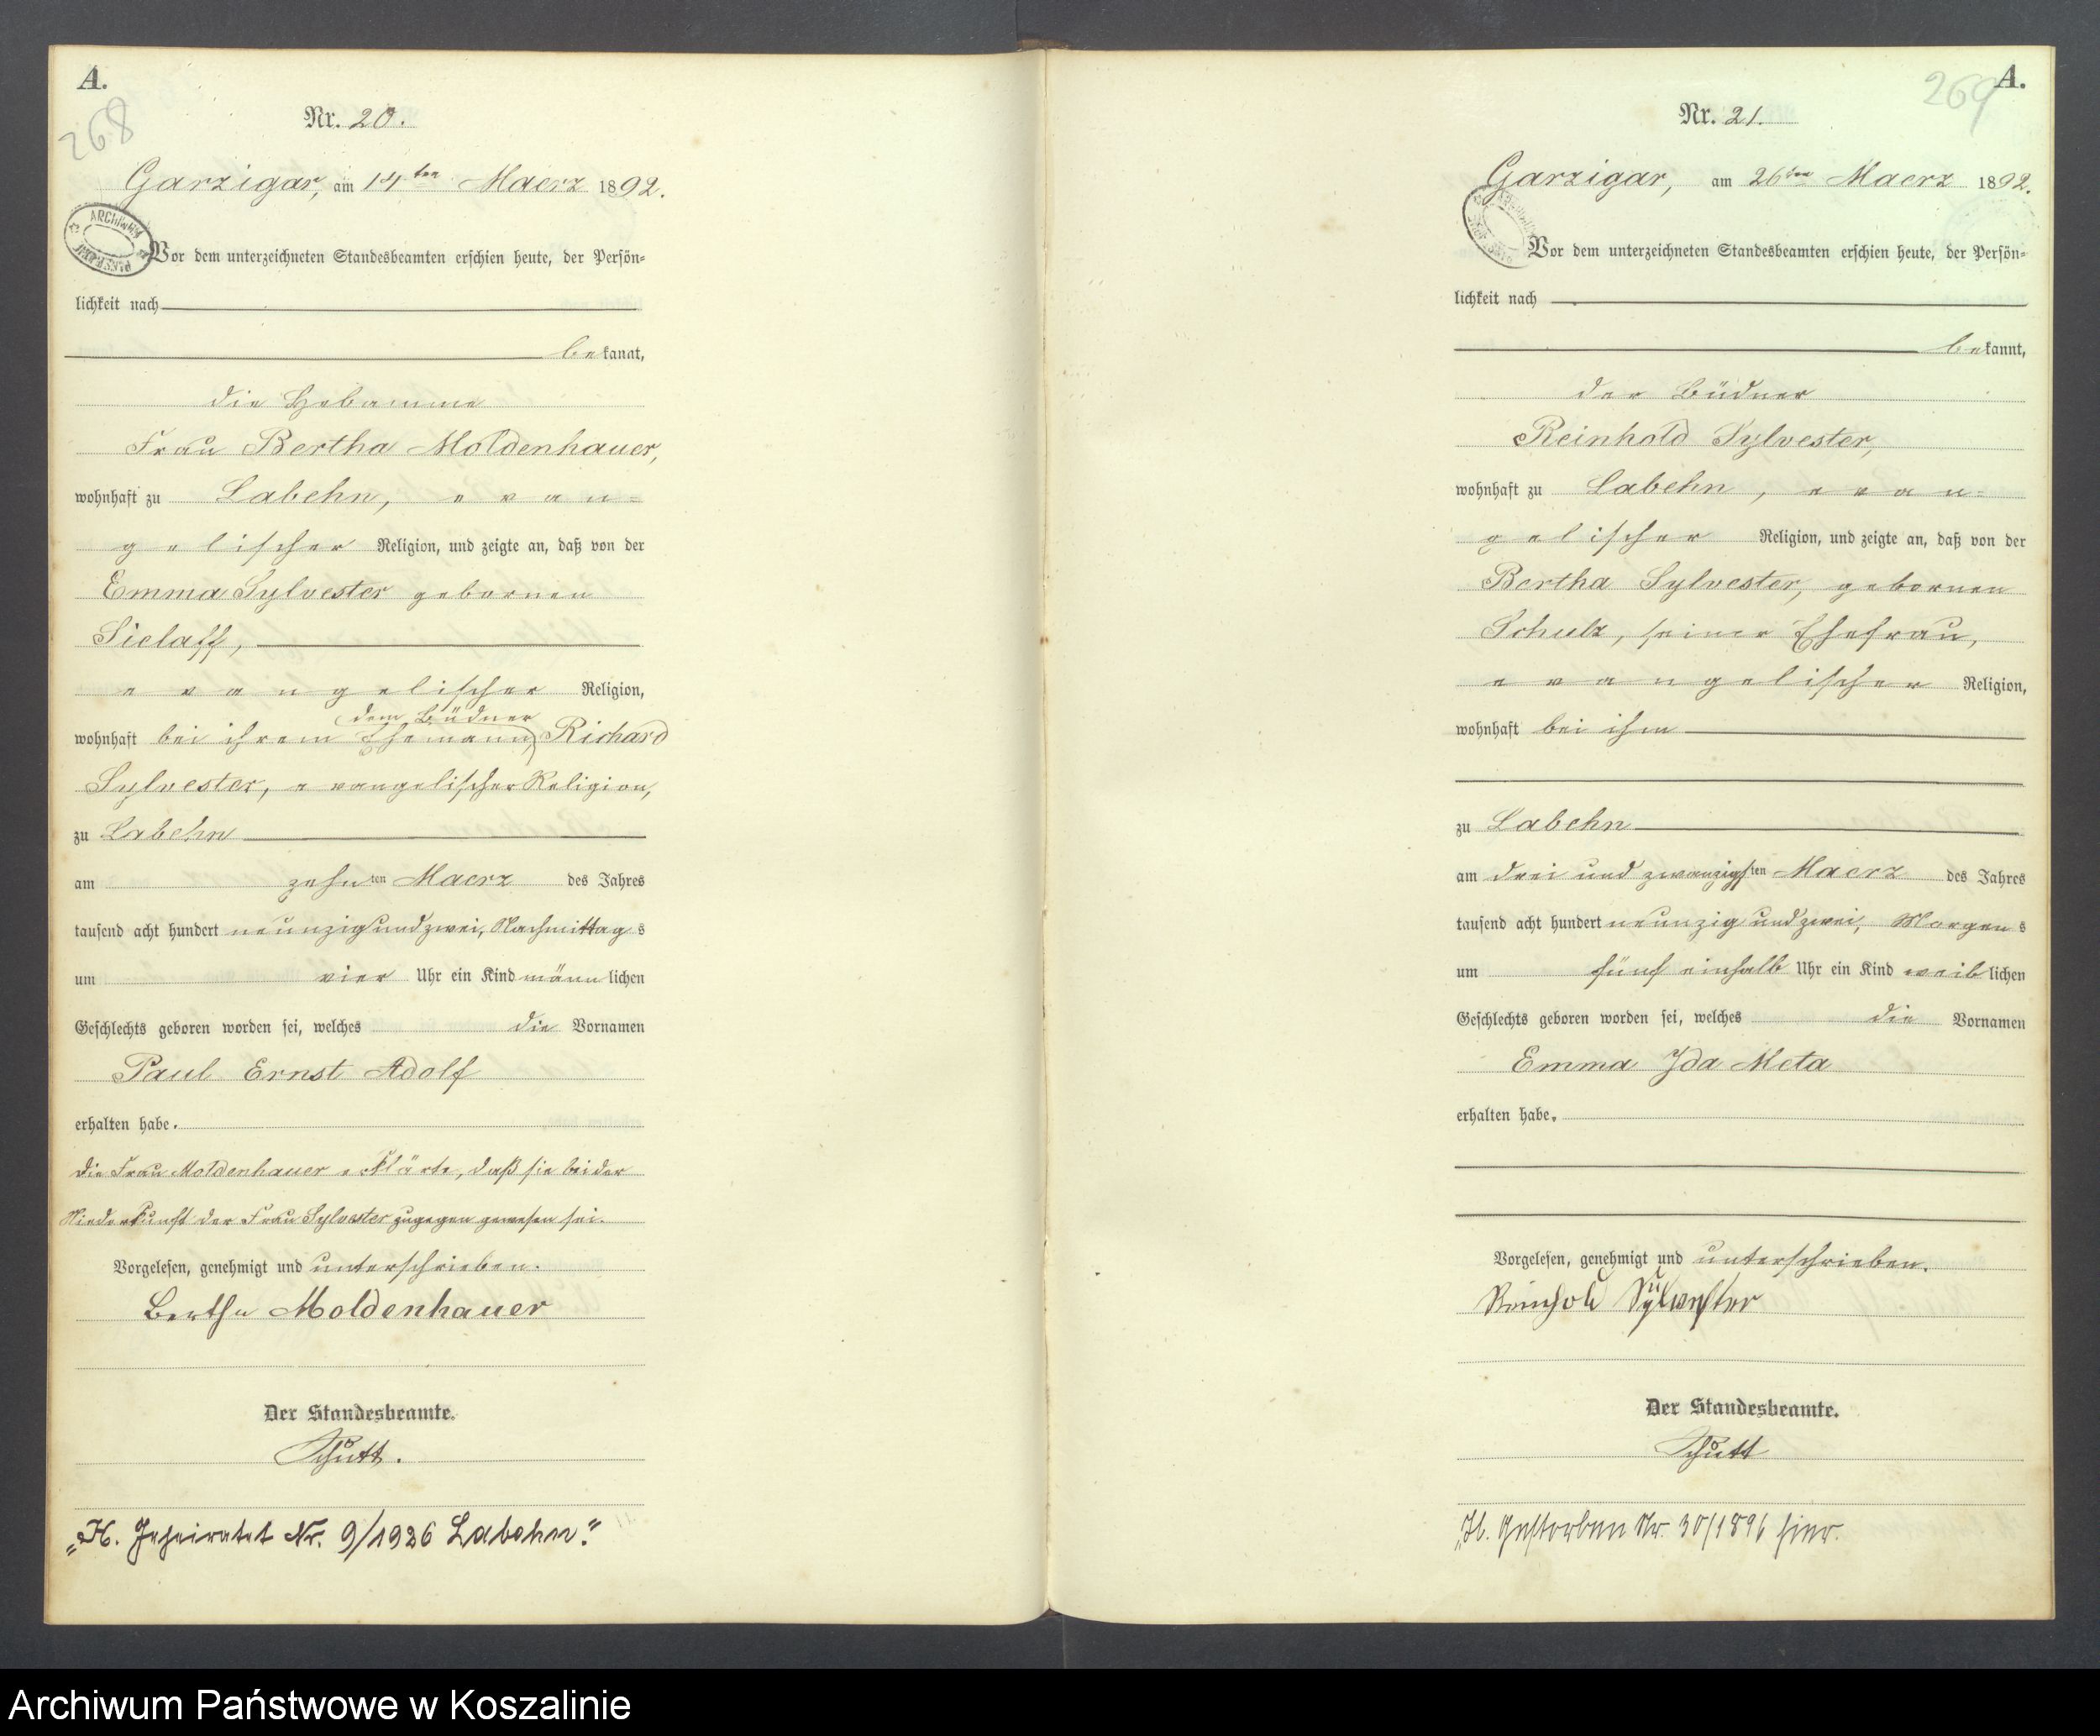 A.
268
Nr. 20.
Garzigar, am 14ten Maerz 1892.
ARCHIWUM
Vor dem unterzeichneten Standesbeamten erschien heute, der Persön=
lichkeit nach
bekannt,
die Hebamme
Frau Bertha Moldenhauer,
wohnhaft zu Labehn, evan=
gelischer Religion, und zeigte an, daß von der
Emma Sylvester gebornen
Sielaff,
evangelischer Religion,
(dem Büdner
wohnhaft bei ihrem Ehemann) Richard
Sylvester, evangelischer Religion,
zu Labehn
am zehnten Maerz des Jahres
tausend acht hundert neunzig und zwei, Nachmittags
um vier Uhr ein Kind männlichen
Geschlechts geboren worden sei, welches die Vornamen
Paul Ernst Adolf
erhalten habe.
Die Frau Moldenhauer erklärte, daß sie bei der
Niederkunft der Frau Sylvester zugegen gewesen sei.
Vorgelesen, genehmigt und unterschrieben.
Bertha Moldenhauer
Der Standesbeamte.
Schutt.
„H. Geheiratet Nr. 9/1926 Labehn."
A.
269
Nr. 21.
Garzigar, am 26ten Maerz 1892.
Vor dem unterzeichneten Standesbeamten erschien heute, der Persön=
lichkeit nach
bekannt,
der Büdner
Reinhold Sylvester,
wohnhaft zu Labehn, evan=
gelischer Religion, und zeigte an, daß von der
Bertha Sylvester, gebornen
Schulz, seiner Ehefrau,
evangelischer Religion,
wohnhaft bei ihm
zu Labehn
am drei und zwanzigsten Maerz des Jahres
tausend acht hundert neunzig und zwei, Morgens
um fünf einhalb Uhr ein Kind weiblichen
Geschlechts geboren worden sei, welches die Vornamen
Emma Ida Meta
erhalten habe.
Vorgelesen, genehmigt und unterschrieben.
Reinhold Sylvester
Der Standesbeamte.
Schutt
„H. Gestorben Nr. 30/1896 hier.
Archiwum Państwowe w Koszalinie